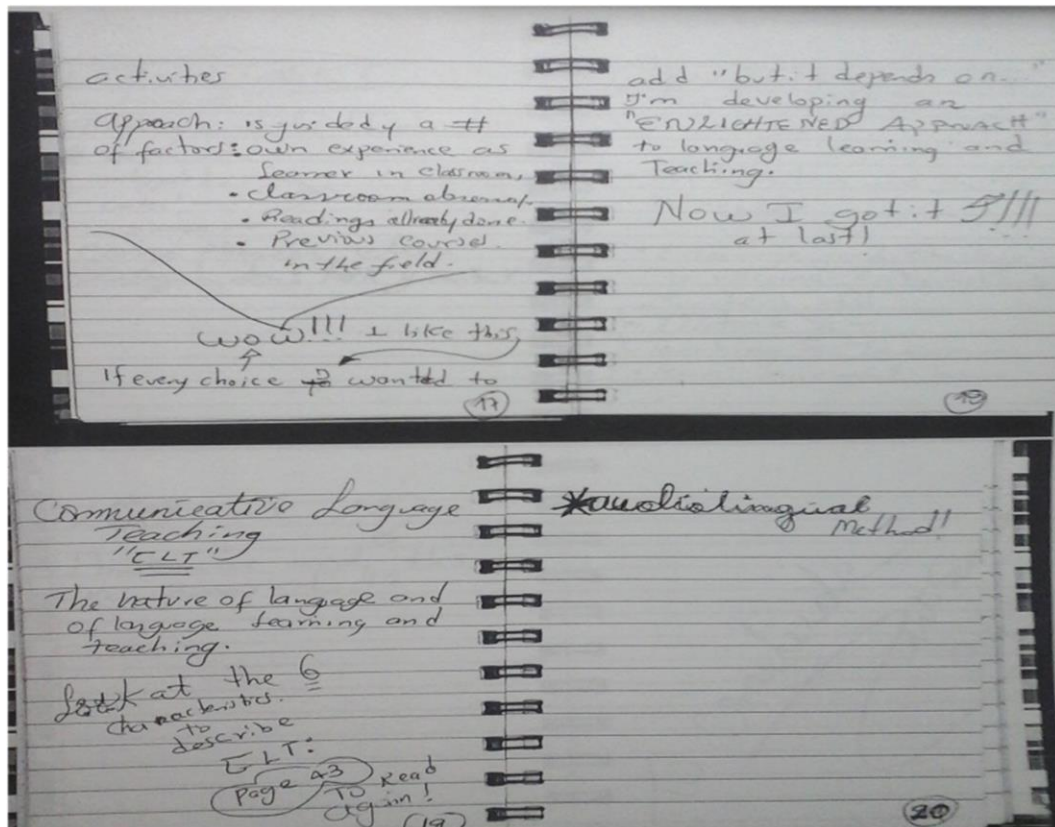 activities
Approach: is guided y a #
of factors: own experience as
learner in classroom,
• classroom
• Readings allready done.
• Previous courses
in the field.
wow!!! I like this
If every choice wanted to
17
add "but it depends on..."
I'm developing an
"ENLIGHTENED APPROACH"
to language learning and
Teaching.
Now I got it !!!!
at last!
18
Communicative Language
Teaching
"CLT"
The nature of langage and
of language learning and
teaching.
Look at the 6
characteristics
to
describe
CLT:
Page 43
To Read
again!
(19)
*audiolingual
Method!!
20